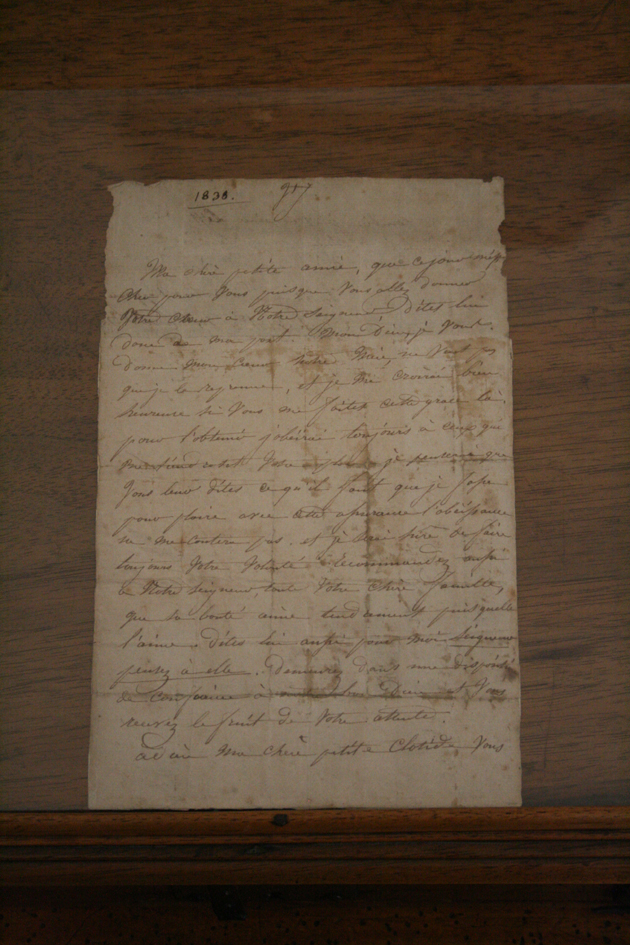 1838. 97
Ma chère petite amie, que ce jour
pour Vous puisque Vous allez donner
Votre Cœur à Notre Seigneur, Dites lui
donc de ma part Mon Dieu je Vous
donne mon Cœur Notre Père, ne
que je le reprenne, et je me croirai bien
heureuse si Vous me faites cette grace là,
pour l'obtenir j'obéirai toujours à ceux qui
Votre je pense que
Vous leur dites ce qu'il faut que je fasse
pour plaire avec cette assurance l'obéissance
ne me coutera pas, et je serai sûre de faire
toujours Votre Volonté. Recommandez aussi
à Notre Seigneur, toute Votre chère famille,
que sa bonté aime tendrement puisqu'elle
l'aime. Dites lui aussi pour moi: Seigneur
pensez à elle. Demeurez dans une
de confiance à Dieu et Vous
recevrez le fruit de Votre attente.
adieu Ma chère petite Clotilde Vous